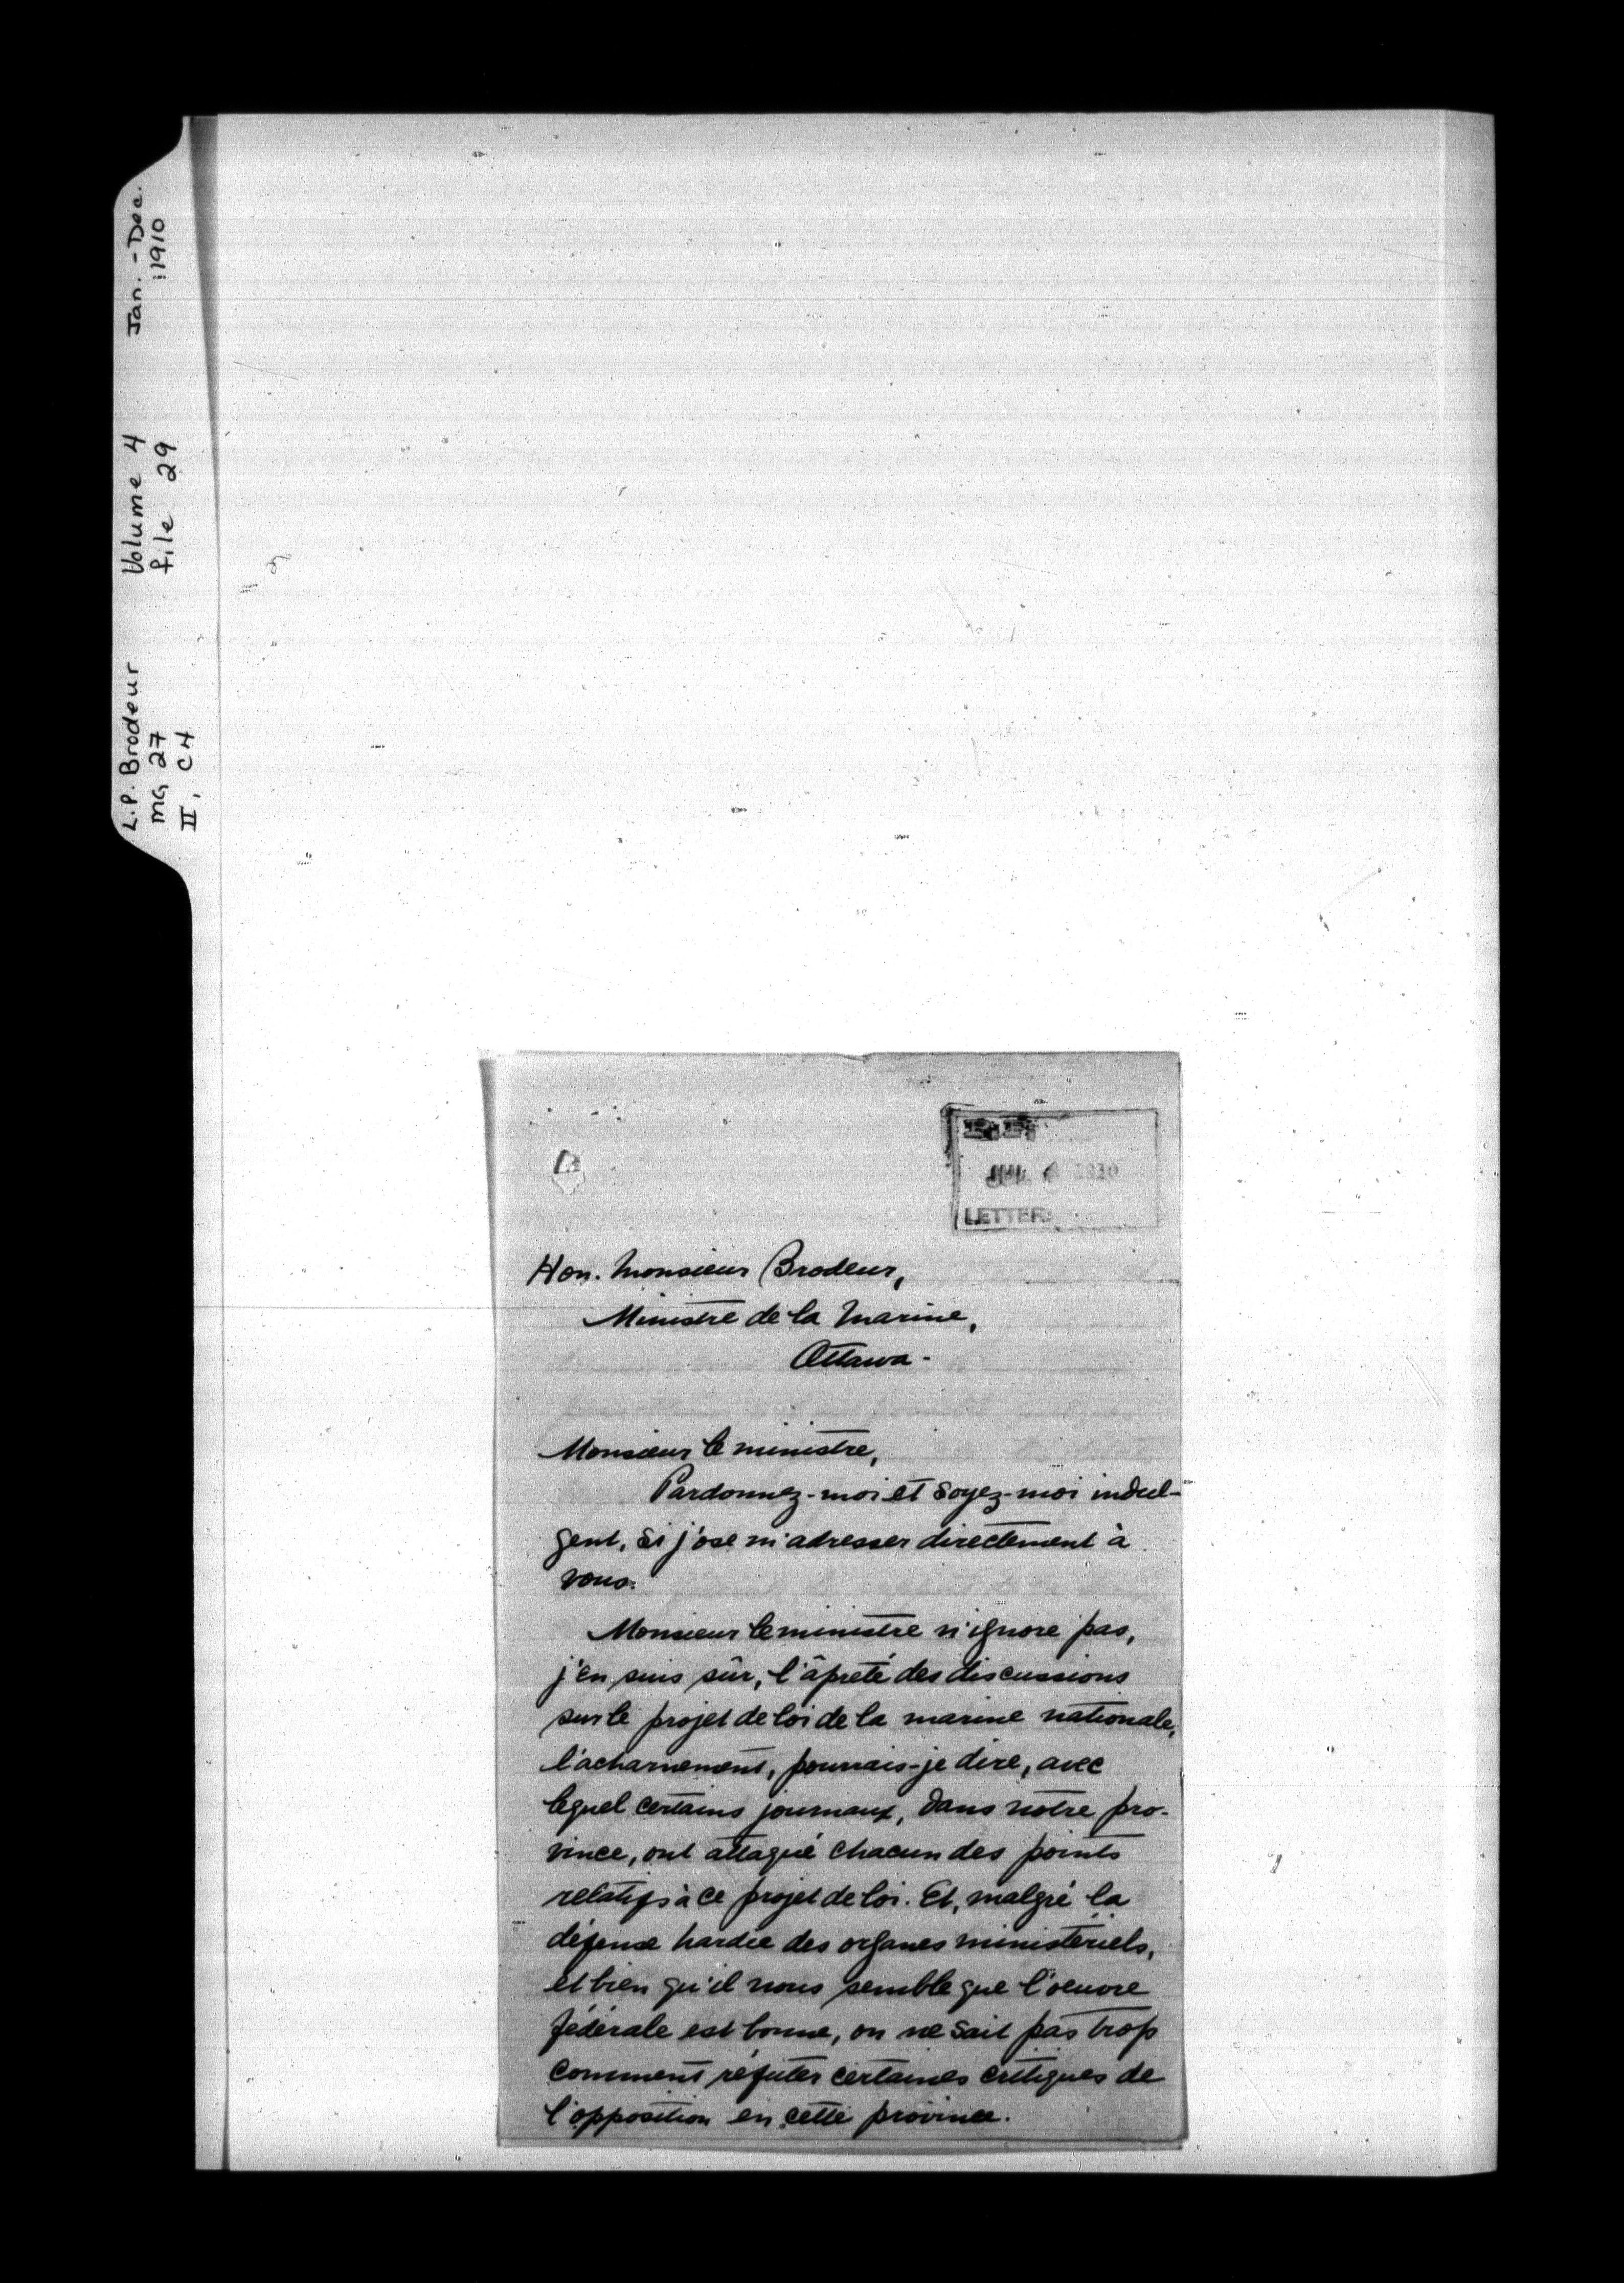 L.P. Brodeur Volume 4 Jan. - Dec.
MG 27 file 29 1910
II, C4
JUL 1910
LETTER
Hon. Monsieur Brodeur,
Ministre de la Marine,
Ottawa -
Monsieur le ministre,
Pardonnez-moi et soyez-moi indul-
gent, si j'ose m'adresser directement à
vous.
Monsieur le ministre n'ignore pas,
j'en suis sûr, l'âpreté des discussions
sur le projet de loi de la marine nationale,
l'acharnement, pourrais-je dire, avec
lequel certains journaux, dans notre pro-
vince, ont attaqué chacun des points
relatifs à ce projet de loi. Et, malgré la
défense hardie des organes ministériels,
et bien qu'il nous semble que l'oeuvre
fédérale est bonne, on ne sait pas trop
comment réfuter certaines critiques de
l'opposition en cette province.